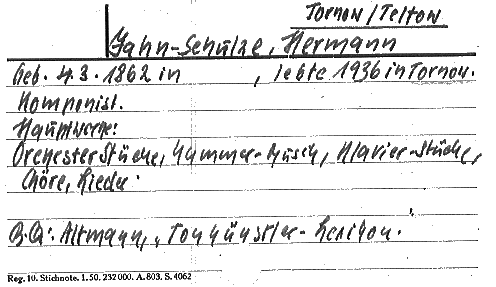 Tornow/Teltow
Jahn-Schulze, Hermann
Geb. 4.3.1862 in , lebte 1936 in Tornow.
Komponist.
Hauptwerke:
Orchesterstücke, Kammer-Musik, Klavier-Stücke,
Chöre, Lieder.
B.Q.: Altmann, "Tonkünstler-Lexikon."
Reg. 10. Stichnote. 1. 50. 232000. A. 803. S. 4062